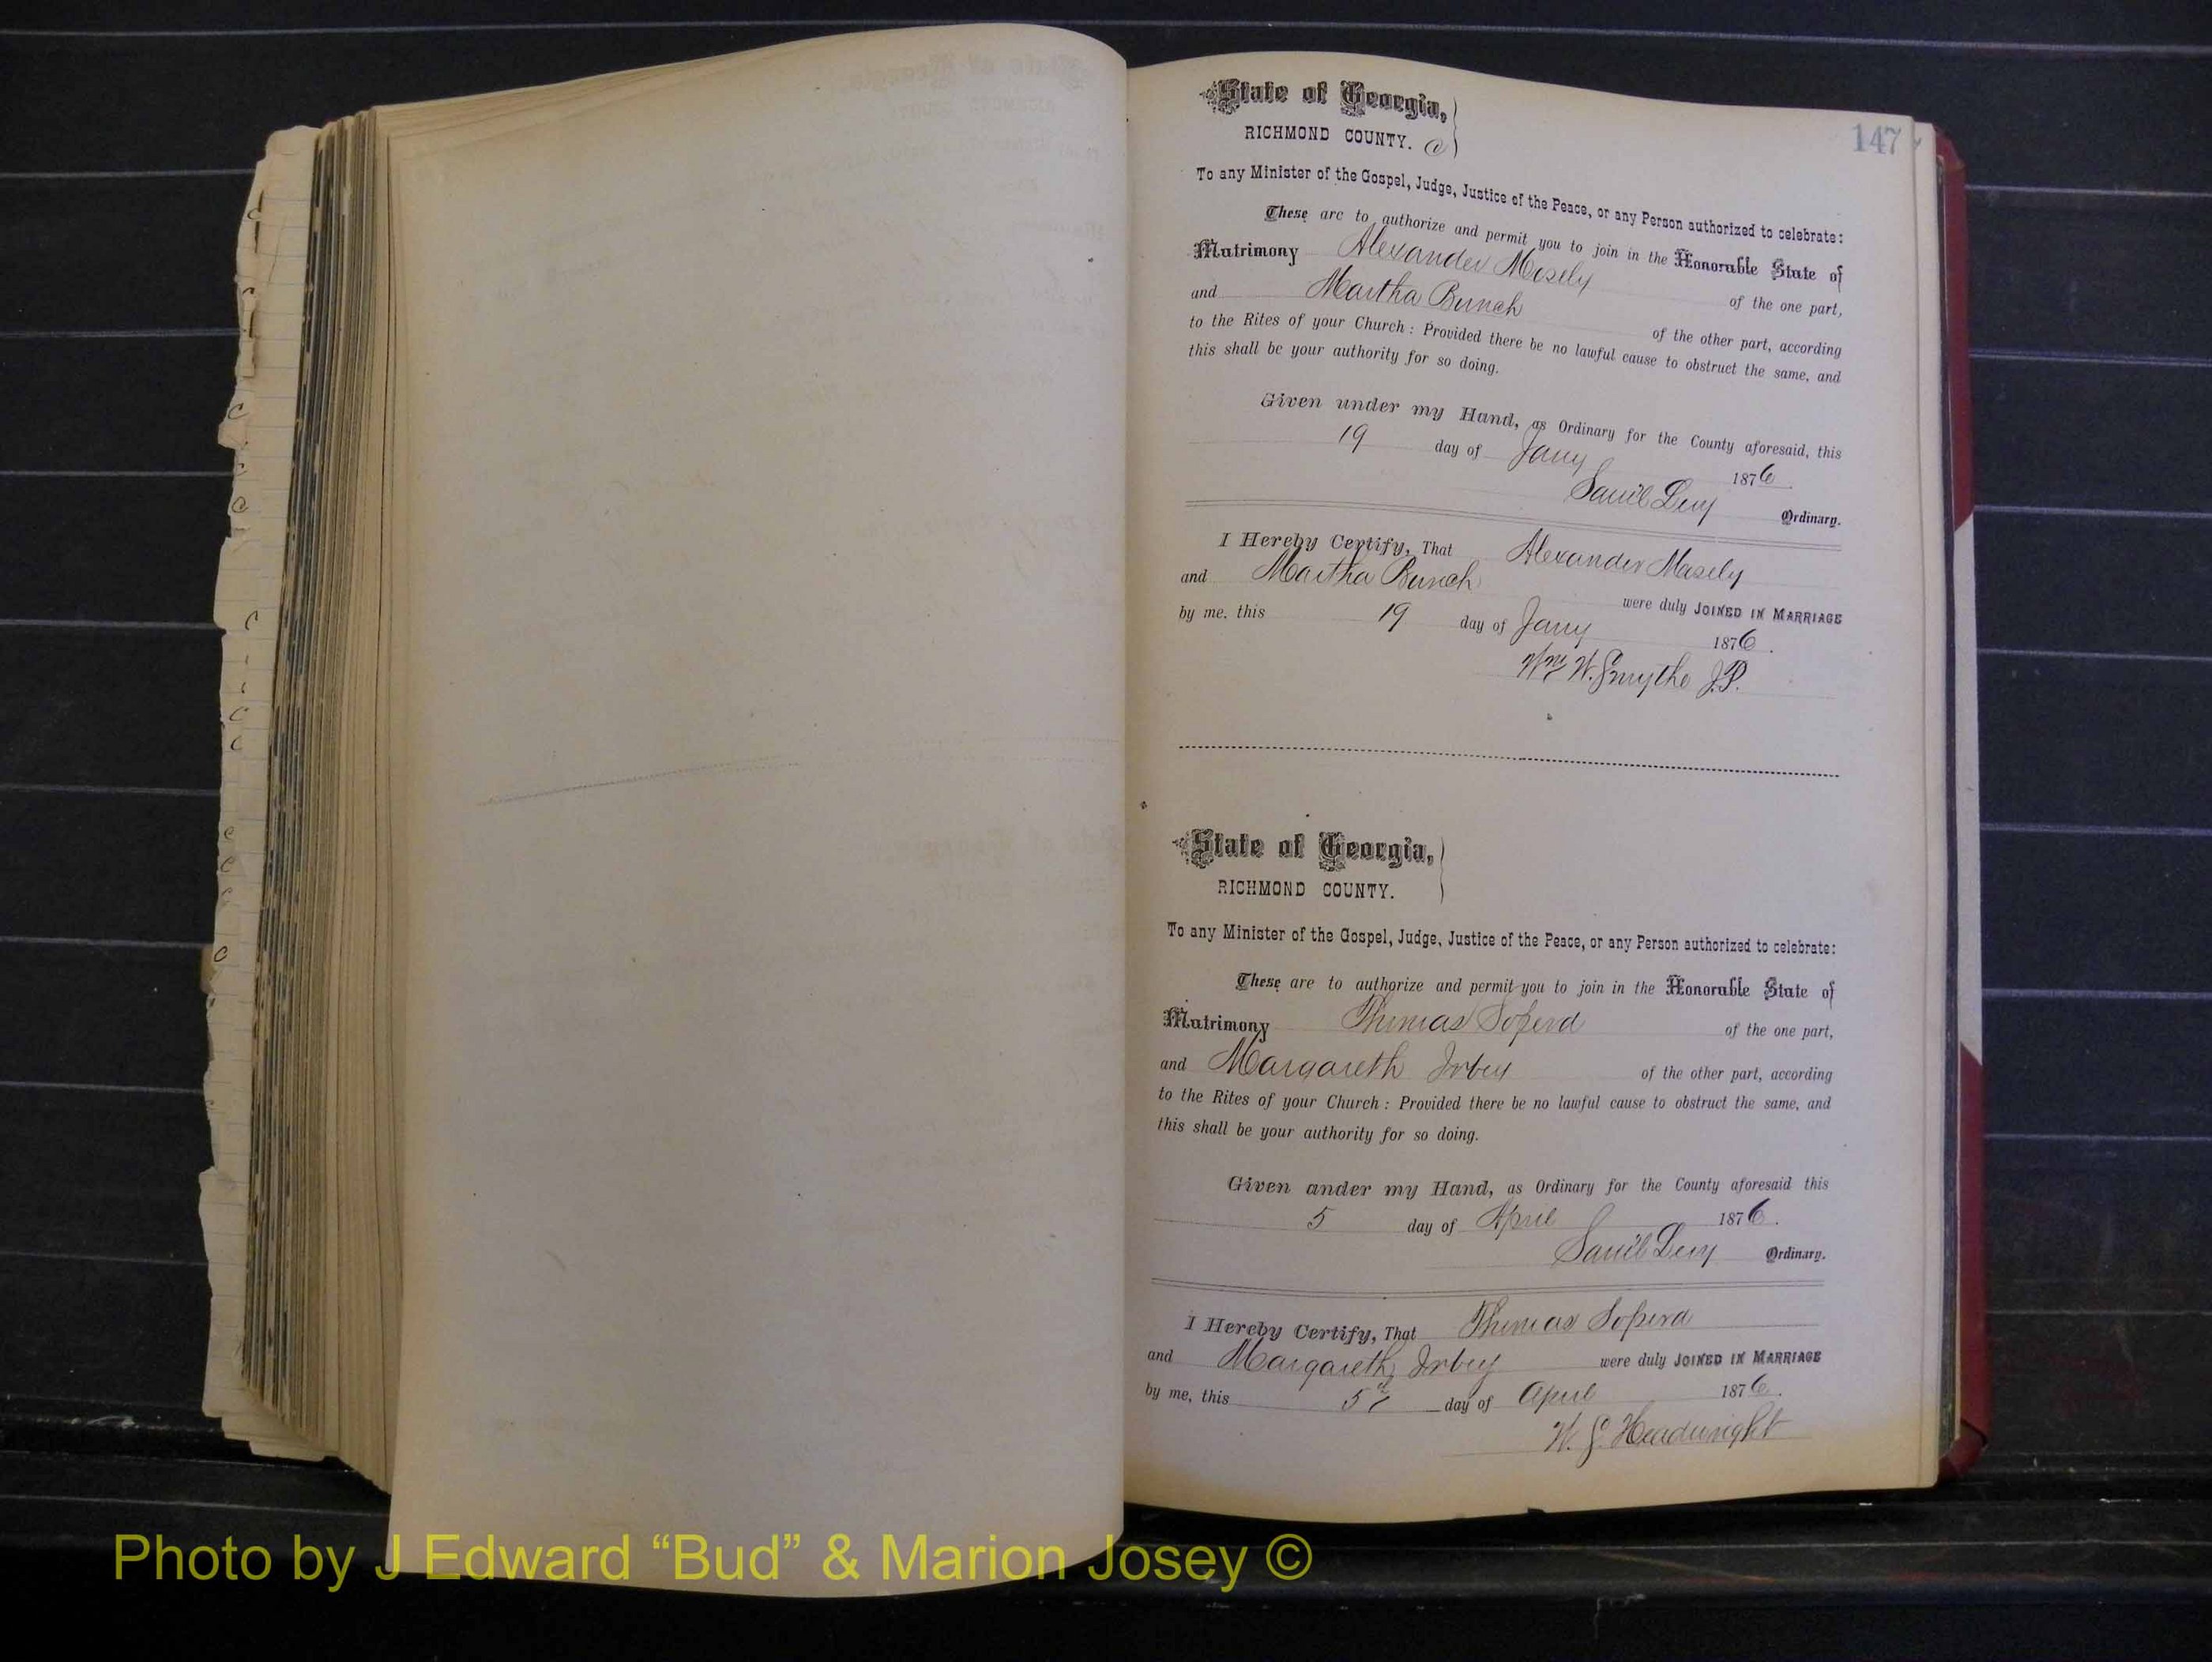 147
State of Georgia,
RICHMOND COUNTY. C
To any Minister of the Gospel, Judge, Justice of the Peace, or any Person authorized to celebrate:
These are to authorize and permit you to join in the Honorable State of
Matrimony Alexander Mosely of the one part,
and Martha Bunch of the other part, according
to the Rites of your Church: Provided there be no lawful cause to obstruct the same, and
this shall be your authority for so doing.
Given under my Hand, as Ordinary for the County aforesaid, this
19 day of Jany 1876.
Saml Levy Ordinary.
I Hereby Certify, That Alexander Mosely
and Martha Bunch were duly JOINED IN MARRIAGE
by me, this 19 day of Jany 1876.
Wm W. Smythe J.P.
State of Georgia,
RICHMOND COUNTY.
To any Minister of the Gospel, Judge, Justice of the Peace, or any Person authorized to celebrate:
These are to authorize and permit you to join in the Honorable State of
Matrimony Thomas of the one part,
and Margareth Irbey of the other part, according
to the Rites of your Church: Provided there be no lawful cause to obstruct the same, and
this shall be your authority for so doing.
Given under my Hand, as Ordinary for the County aforesaid this
5 day of April 1876.
Saml Levy Ordinary.
I Hereby Certify, That Thomas
and Margareth Irbey were duly JOINED IN MARRIAGE
by me, this 5th day of April 1876.
Photo by J Edward “Bud” & Marion Josey ©